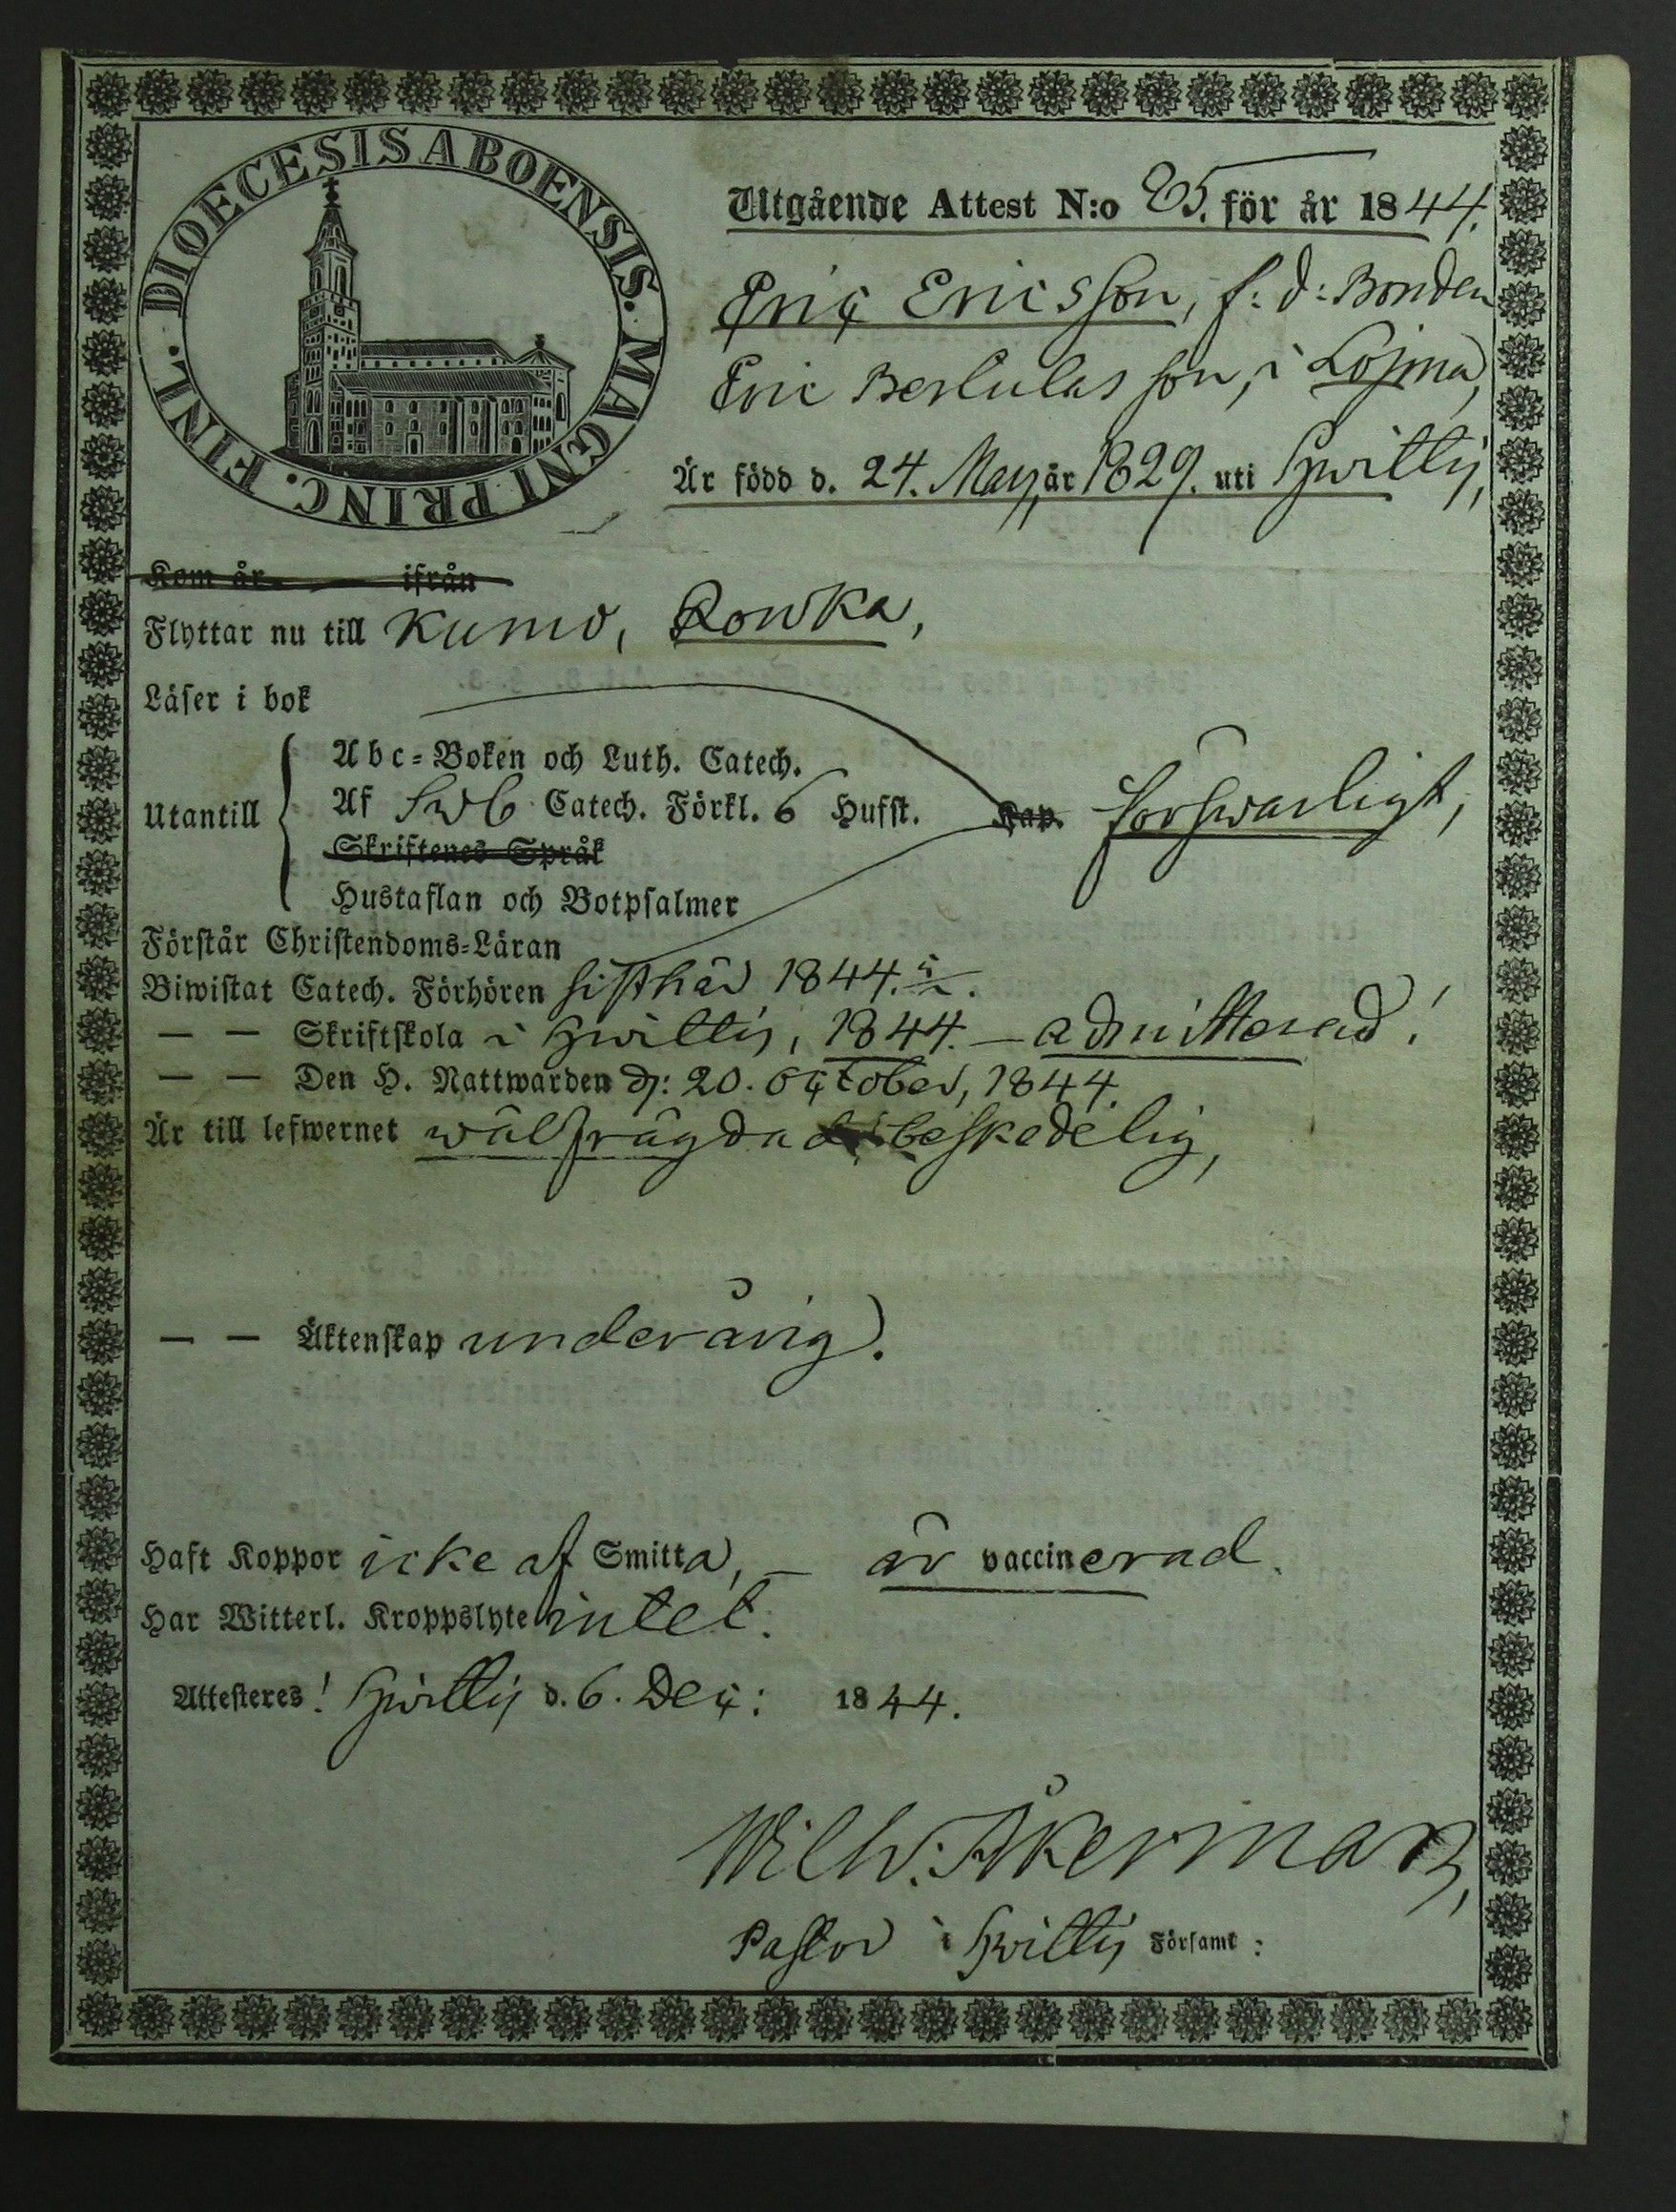 DIOECESIS ABOENSIS. MAGNI PRINC. FINL.
Utgående Attest N:o 85. för år 1844.
Eric Ericsson, f: d: Bonden
Eric Bertulas son, i Lojma,
Är född d. 24. Maij, år 1829. uti Hvittis,
Kom år ifrån
Flyttar nu till Kumo, Rowka,
Läser i bok
Abc-Boken och Luth. Catech.
Utantill Af Swb Catech. Förkl. 6 Husst. Kap. förswarligt,
Skriftenes Språk
Hustaflan och Botpsalmer
Förstår Christendoms-Läran
Biwistat Catech. Förhören sist här 1844.
— — Skriftskola i Hvittis, 1844. — admitterad!
— — Den H. Nattwarden d: 20. October, 1844.
Är till lefwernet wälfrägdad beskedelig,
— — Äktenskap underårig.
Haft Koppor icke af Smitta, — är vaccinerad.
Har Witterl. Kroppslyte intet.
Attesteres! Hvittis d. 6. Dec: 1844.
Wilh: Åkerman,
Pastor i Hvittis Församl: